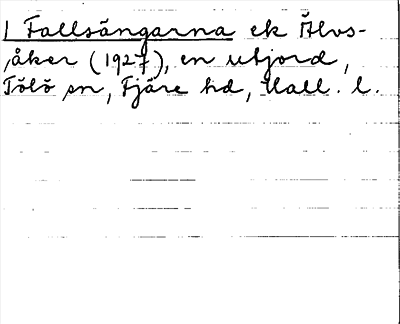 1 Fallsängarna ek Älvs-
åker (1927), en utjord,
Tölö sn, Fjäre hd, Hall. l.